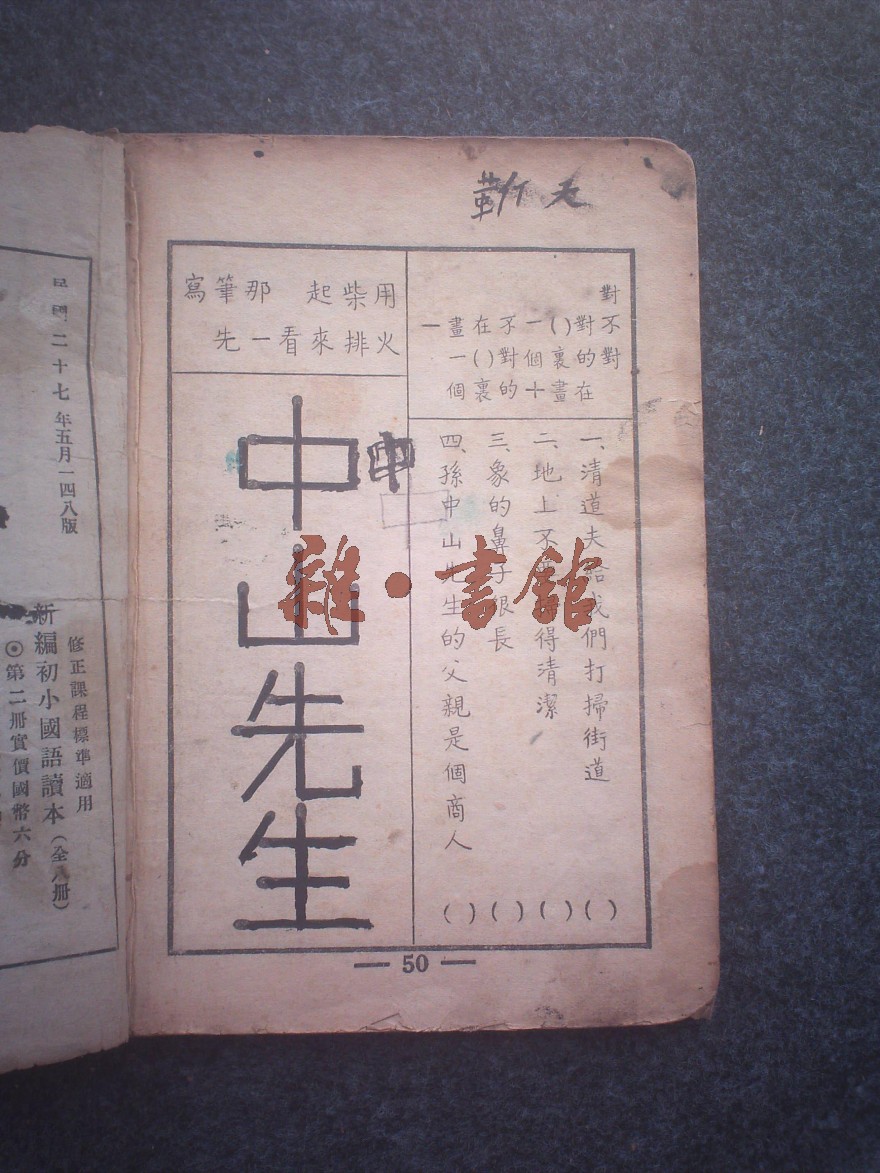 對不對
對的在
()裏畫
一個十
不對的
在()裏
畫一個
一
一、清道夫給我們打掃街道()
二、地上不得清潔()
三、象的鼻子很長()
四、孫中山先生的父親是個商人()
用火
柴排
起來
看
那一
筆先
寫
中山先生
中
雜·書館
— 50 —
民國二十七年五月一四八版
修正課程標準適用
新編初小國語讀本(全八冊)
◎第二冊實價國幣六分